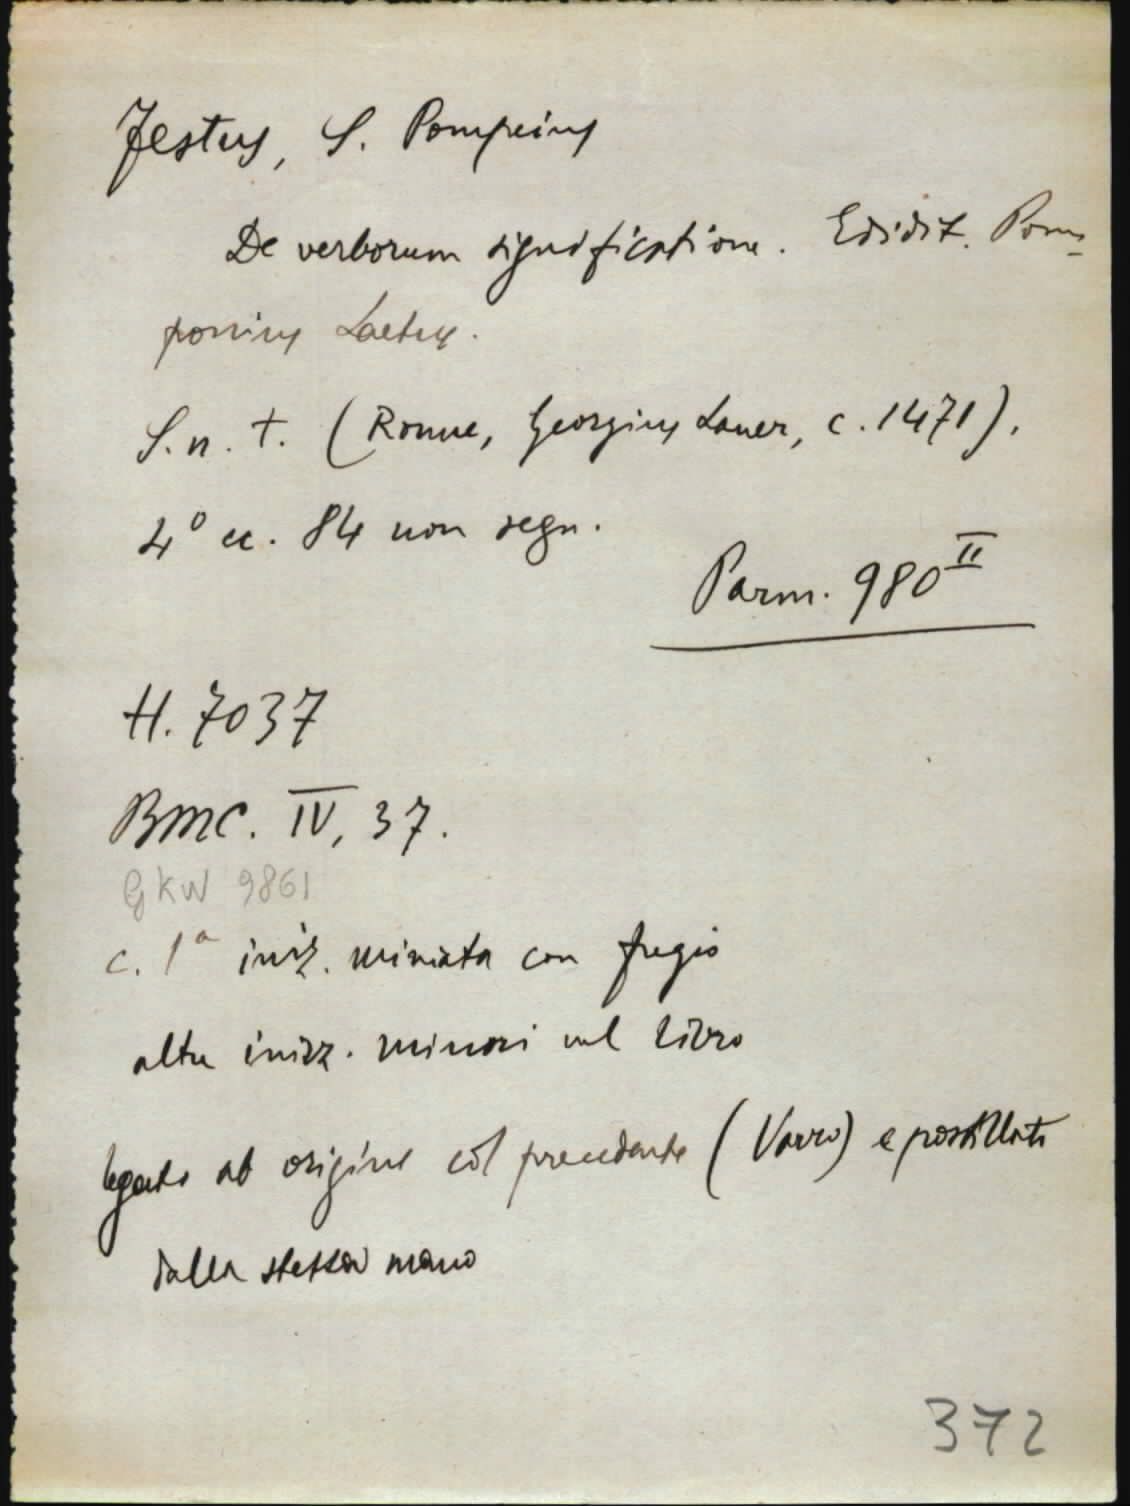 Festus, S. Pompeius
De verborum significatione. Edidit. Pom=
ponius Laetus.
S. n. t. (Romae, Georgius Lauer, c. 1471).
4° cc. 84 non segn.
Parm. 980 II
H. 7037
BMC. IV, 37.
GKW 9861
c. 1ª iniz. miniata con fregio
altre inizz. minori nel libro
legato ab origine col precedente (Varro) e postillato
dalla stessa mano
372